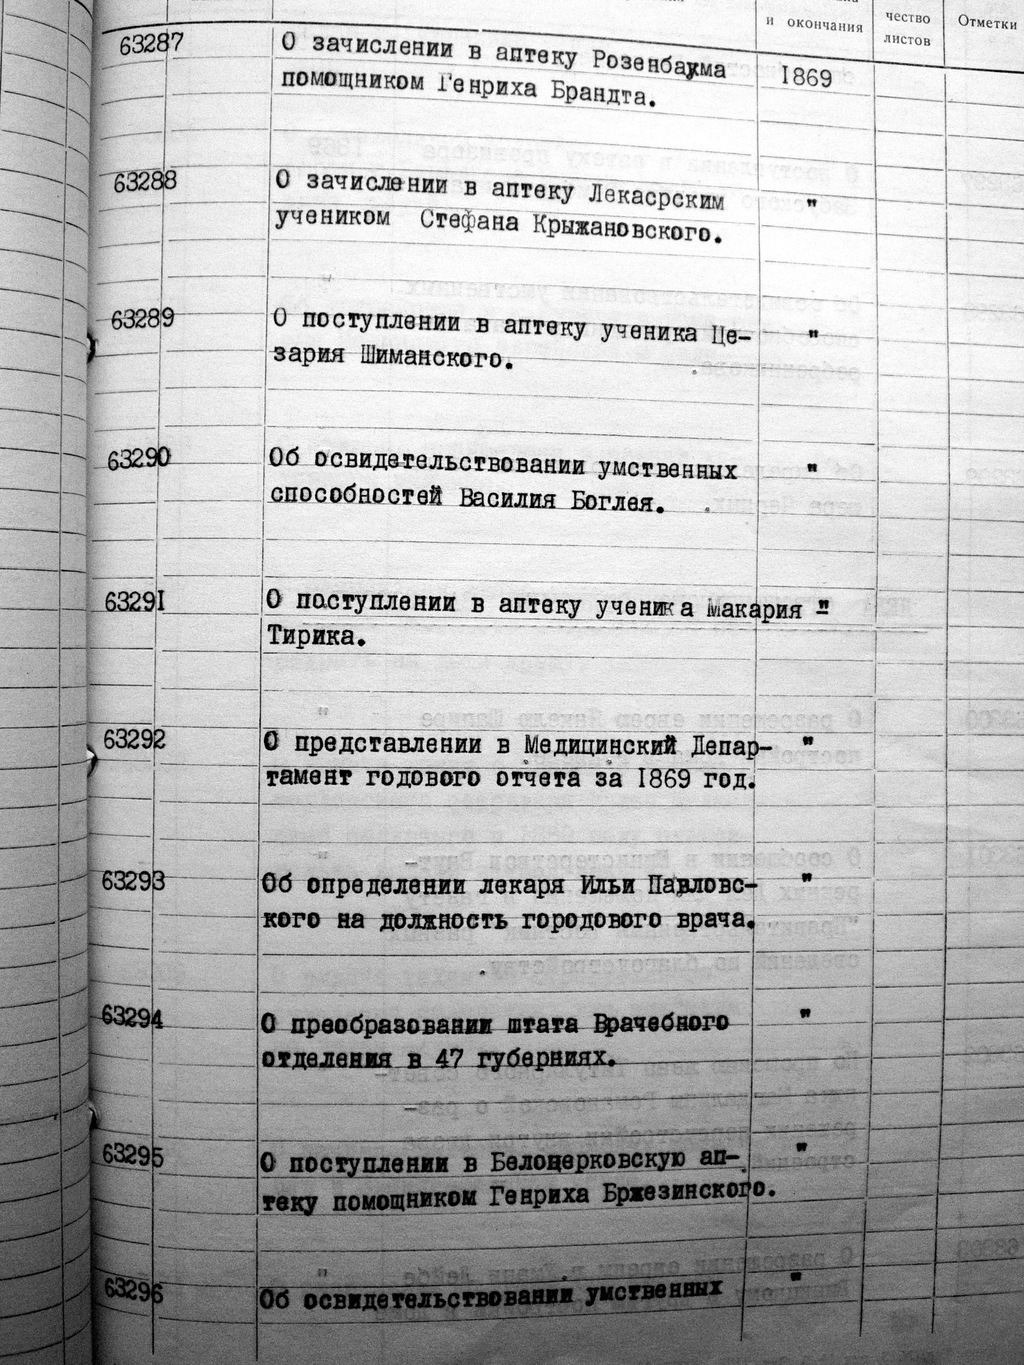 и окончания
чество
листов
Отметки
63287 О зачислении в аптеку Розенбаума 1869
помощником Генриха Брандта.
63288 О зачислении в аптеку Лекасрским "
учеником Стефана Крыжановского.
63289 О поступлении в аптеку ученика Це- "
зария Шиманского.
63290 Об освидетельствовании умственных "
способностей Василия Боглея.
63291 О поступлении в аптеку ученика Макария "
Тирика.
63292 О представлении в Медицинский Депар- "
тамент годового отчета за 1869 год.
63293 Об определении лекаря Ильи Павловс- "
кого на должность городового врача.
63294 О преобразовании штата Врачебного "
отделения в 47 губерниях.
63295 О поступлении в Белоцерковскую ап- "
теку помощником Генриха Бржезинского.
63296 Об освидетельствовании умственных "